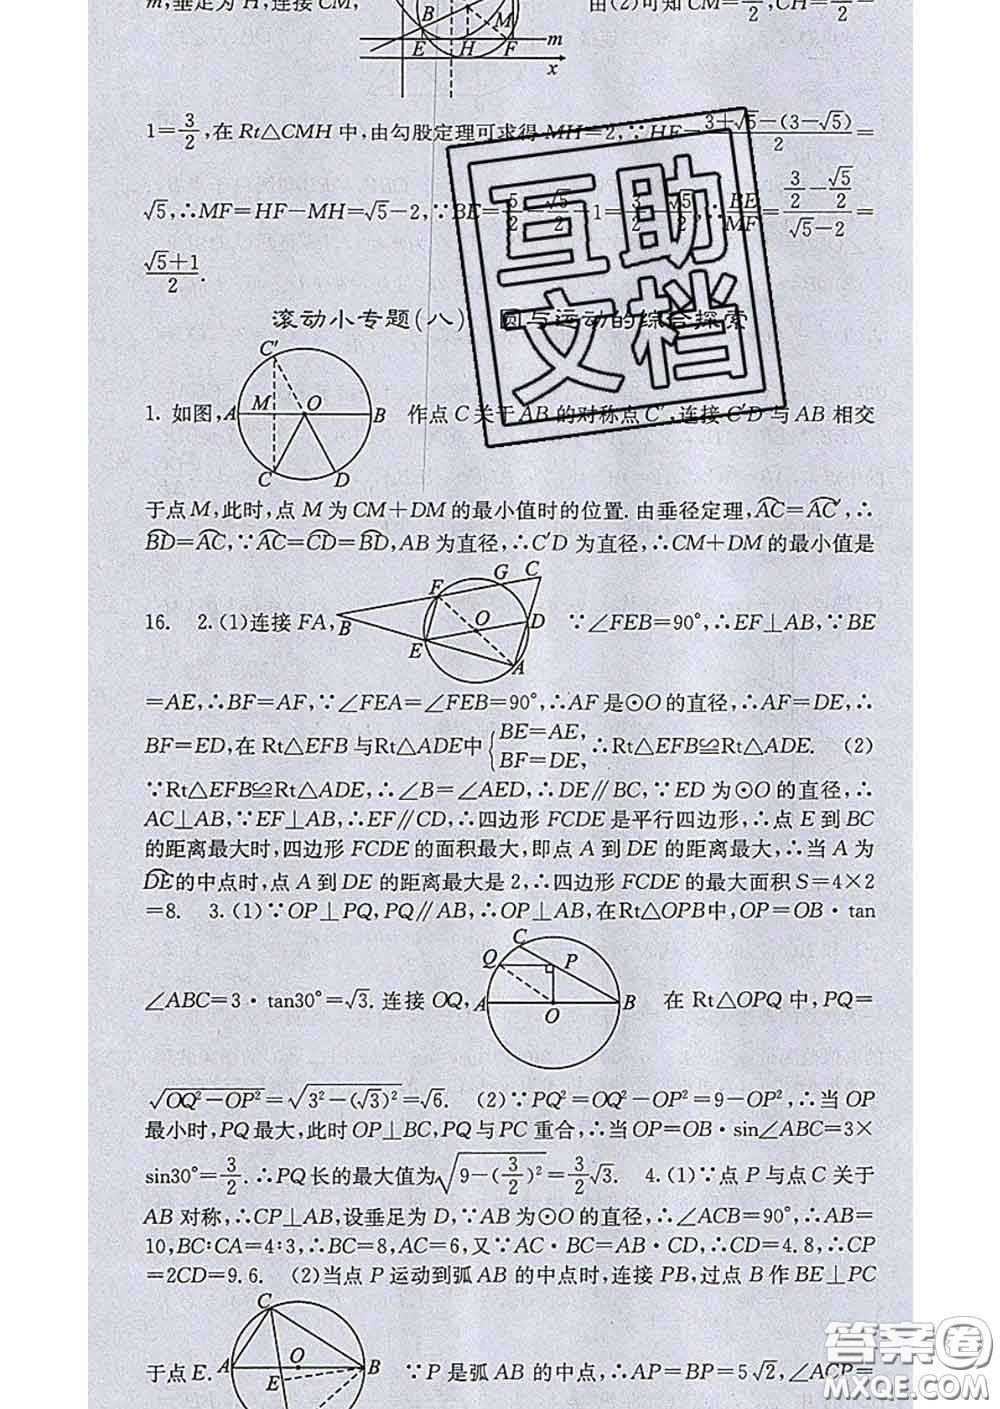 m,垂足为 H,连接 CM, 由(2)可知 CM=
B M E H F m x
1=3/2,在 Rt△CMH 中,由勾股定理可求得 MH=2,∵HF=(3+√5-(3-√5))/2=
√5,∴MF=HF-MH=√5-2,∵BE=5/2-√5/2-1=3/2-√5/2,∴BE/MF=(3/2-√5/2)/(√5-2)=
(√5+1)/2.
滚动小专题(八) 圆与运动的综合探索
C′ A M O B C D
1. 如图, 作点 C 关于 AB 的对称点 C′,连接 C′D 与 AB 相交
于点 M,此时,点 M 为 CM+DM 的最小值时的位置.由垂径定理,AC=AC′,∴
BD=AC,∵AC=CD=BD,AB 为直径,∴C′D 为直径,∴CM+DM 的最小值是
B F G C O D E A
16. 2.(1)连接 FA, ∵∠FEB=90°,∴EF⊥AB,∵BE
=AE,∴BF=AF,∵∠FEA=∠FEB=90°,∴AF 是⊙O 的直径,∴AF=DE,∴
BF=ED,在 Rt△EFB 与Rt△ADE中{BE=AE, BF=DE,∴Rt△EFB≌Rt△ADE. (2)
∵Rt△EFB≌Rt△ADE,∴∠B=∠AED,∴DE∥BC,∵ED 为⊙O 的直径,∴
AC⊥AB,∵EF⊥AB,∴EF∥CD,∴四边形 FCDE 是平行四边形,∴点 E 到 BC
的距离最大时,四边形 FCDE 的面积最大,即点 A 到 DE 的距离最大,∴当 A 为
DE的中点时,点 A 到 DE 的距离最大是 2,∴四边形 FCDE 的最大面积 S=4×2
=8. 3.(1)∵OP⊥PQ,PQ∥AB,∴OP⊥AB,在Rt△OPB中,OP=OB·tan
C Q P A O B
∠ABC=3·tan30°=√3.连接 OQ, 在 Rt△OPQ 中,PQ=
√(OQ²-OP²)=√(3²-(√3)²)=√6. (2)∵PQ²=OQ²-OP²=9-OP²,∴当 OP
最小时,PQ 最大,此时 OP⊥BC,PQ 与 PC 重合,∴当 OP=OB·sin∠ABC=3×
sin30°=3/2.∴PQ 长的最大值为√(9-(3/2)²)=3/2√3. 4.(1)∵点 P 与点 C 关于
AB 对称,∴CP⊥AB,设垂足为 D,∵AB 为⊙O 的直径,∴∠ACB=90°,∴AB=
10,BC:CA=4:3,∴BC=8,AC=6,又∵AC·BC=AB·CD,∴CD=4.8,∴CP
=2CD=9.6. (2)当点 P 运动到弧 AB 的中点时,连接 PB,过点 B 作 BE⊥PC
C A O B E
于点 E. ∵P 是弧 AB 的中点,∴AP=BP=5√2,∠ACP=
互助文档
答案圈
MXQE.COM